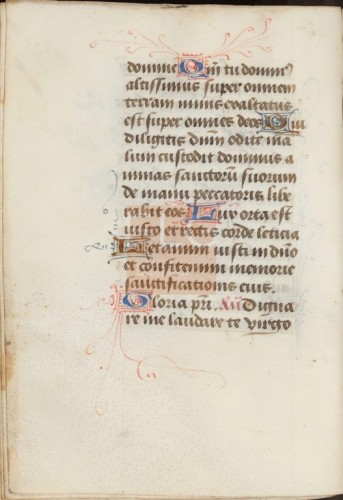 domine Qm̄ tu domin9
altissimus super omnem
terram nimis exaltatus
est super omnes deos Qui
diligitis dnm̄ odite ma
lum custodit dominus a
nimas sanctorū suorum
de manu peccatoris libe
rabit eos Lux orta est
iusto et rectis corde leticia
Letamini iusti in dn̄o
et confitemini memorie
sanctificationis eius.
Gloria pr̄i. An̄ Digna
re me laudare te virgo